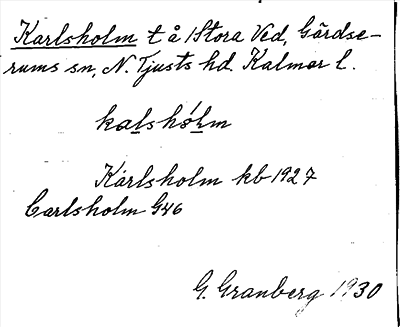 Karlsholm t å 1 Stora Ved, Gärdse-
rums sn, N. Tjusts hd. Kalmar l.
kalshólm
Karlsholm kb 1927
Carlsholm G46
G. Granberg 1930